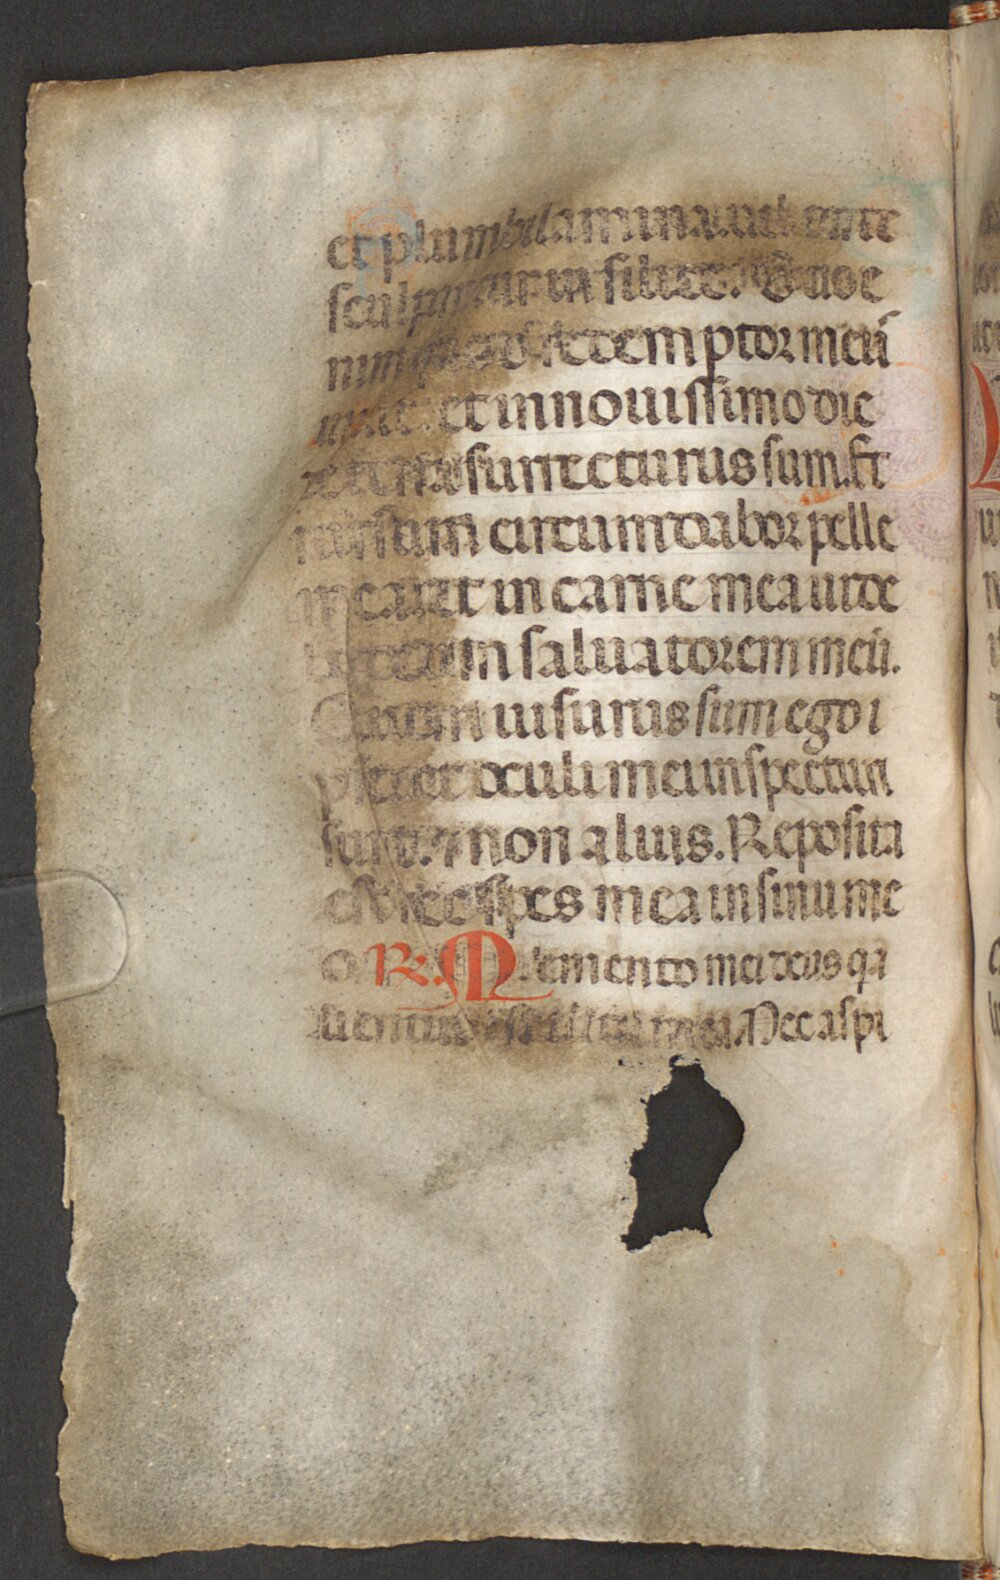 et plumbi lamina. uel certe
sculpantur in silice. Scio e
nim quod redemptor meus
uiuit. et in nouissimo die
de terra surrecturus sum. Et
rursum circumdabor pelle
mea. et in carne mea uide
bo deum saluatorem meū.
Quem uisurus sum ego i
pse et oculi mei inspecturi
sunt. ⁊ non alius. Reposita
est hec spes mea in sinu me
o. R. Memento mei deus q̄a
uentus est uita mea. Nec aspi